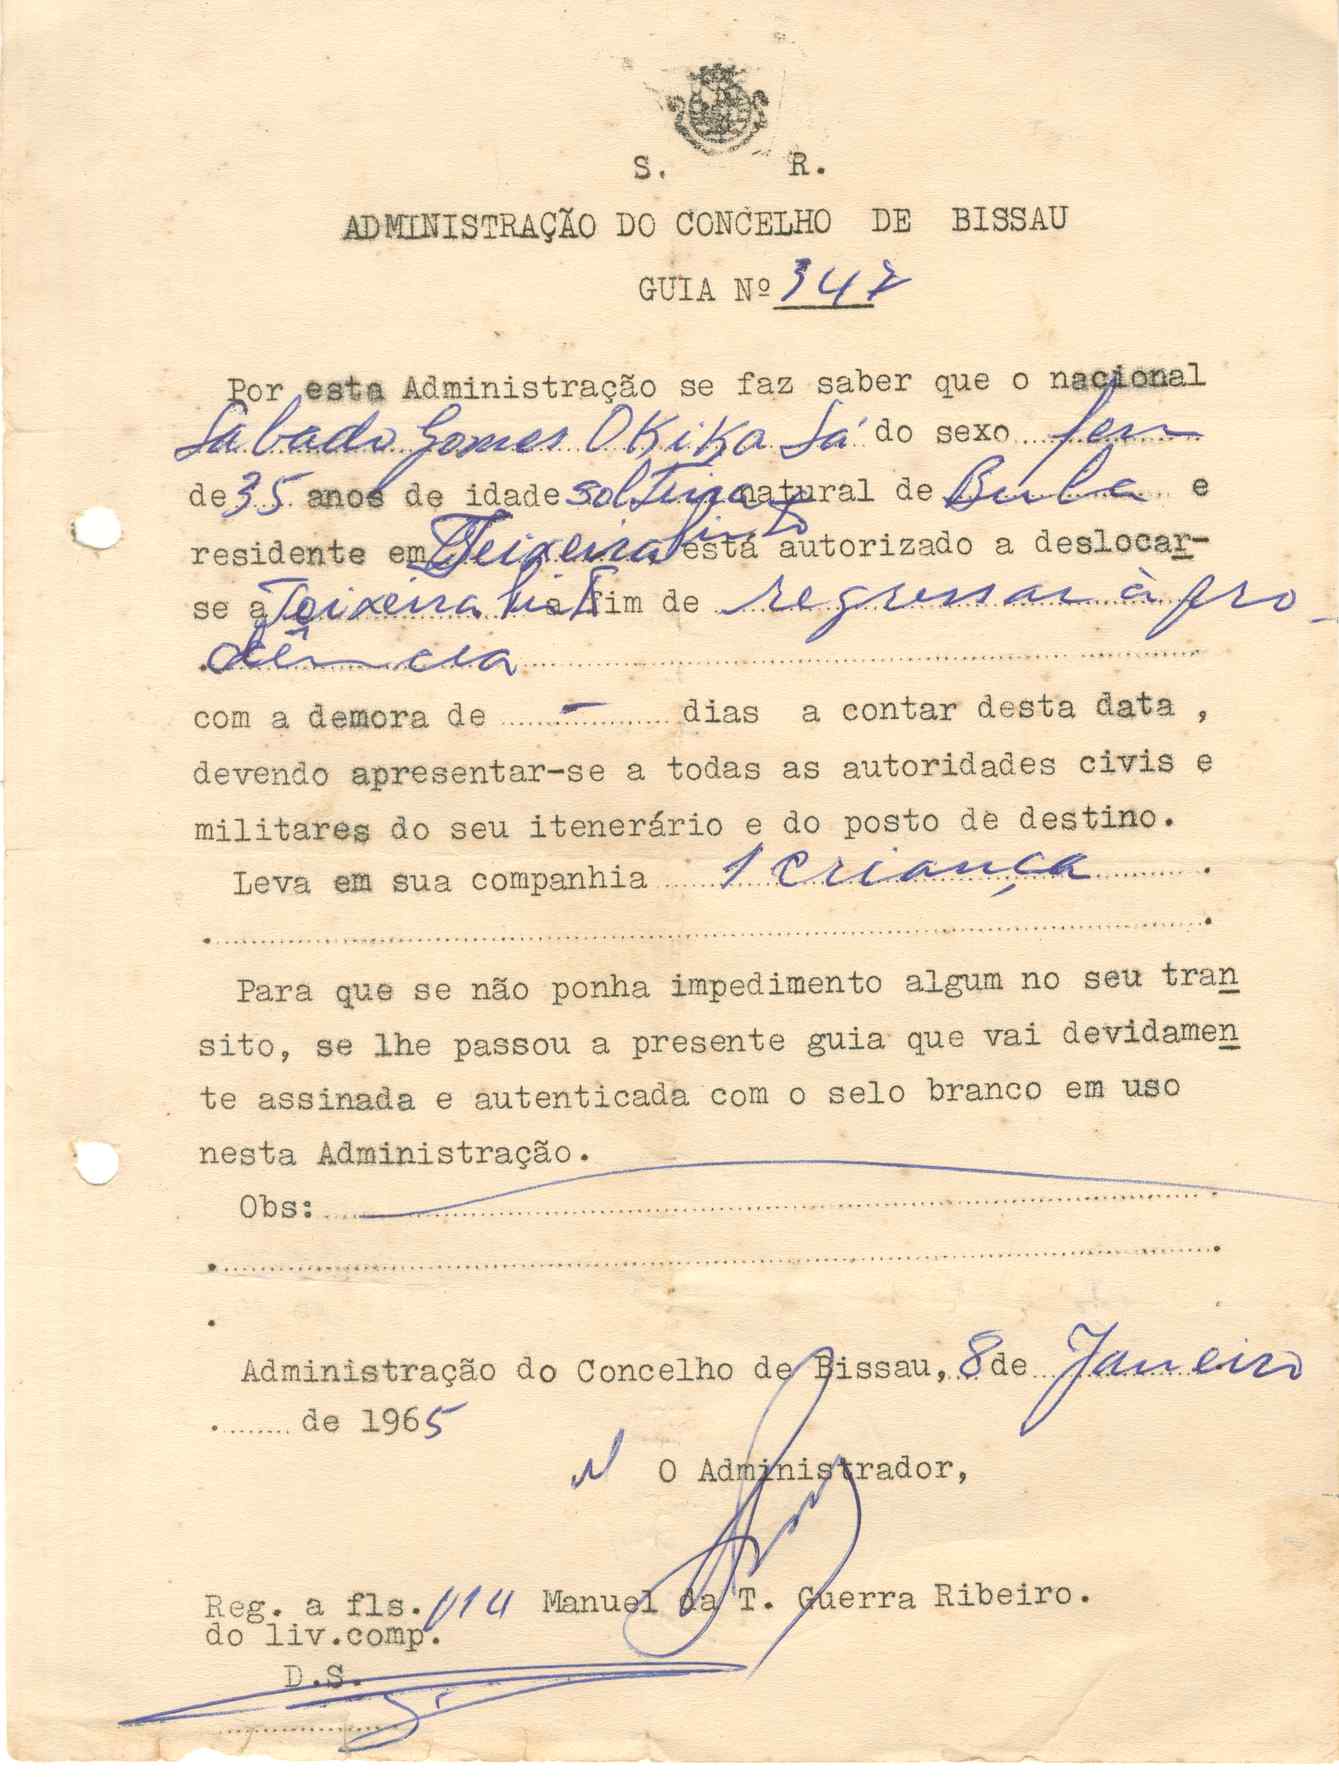 S. R.
ADMINISTRAÇÃO DO CONCELHO DE BISSAU
GUIA Nº 347
Por esta Administração se faz saber que o nacional
Sabado Gomes Okika Sá do sexo fem
de 35 anos de idade solteira natural de Bula e
residente em Teixeira Pinto está autorizado a deslocar-
se a Teixeira Pint a fim de regressar à pro
dência
com a demora de - dias a contar desta data ,
devendo apresentar-se a todas as autoridades civis e
militares do seu itenerário e do posto de destino.
Leva em sua companhia 1 criança .
Para que se não ponha impedimento algum no seu tran
sito, se lhe passou a presente guia que vai devidamen
te assinada e autenticada com o selo branco em uso
nesta Administração.
Obs:
Administração do Concelho de Bissau, 8 de Janeiro
de 1965
O Administrador,
Reg. a fls. 114 Manuel da T. Guerra Ribeiro.
do liv.comp.
D.S.